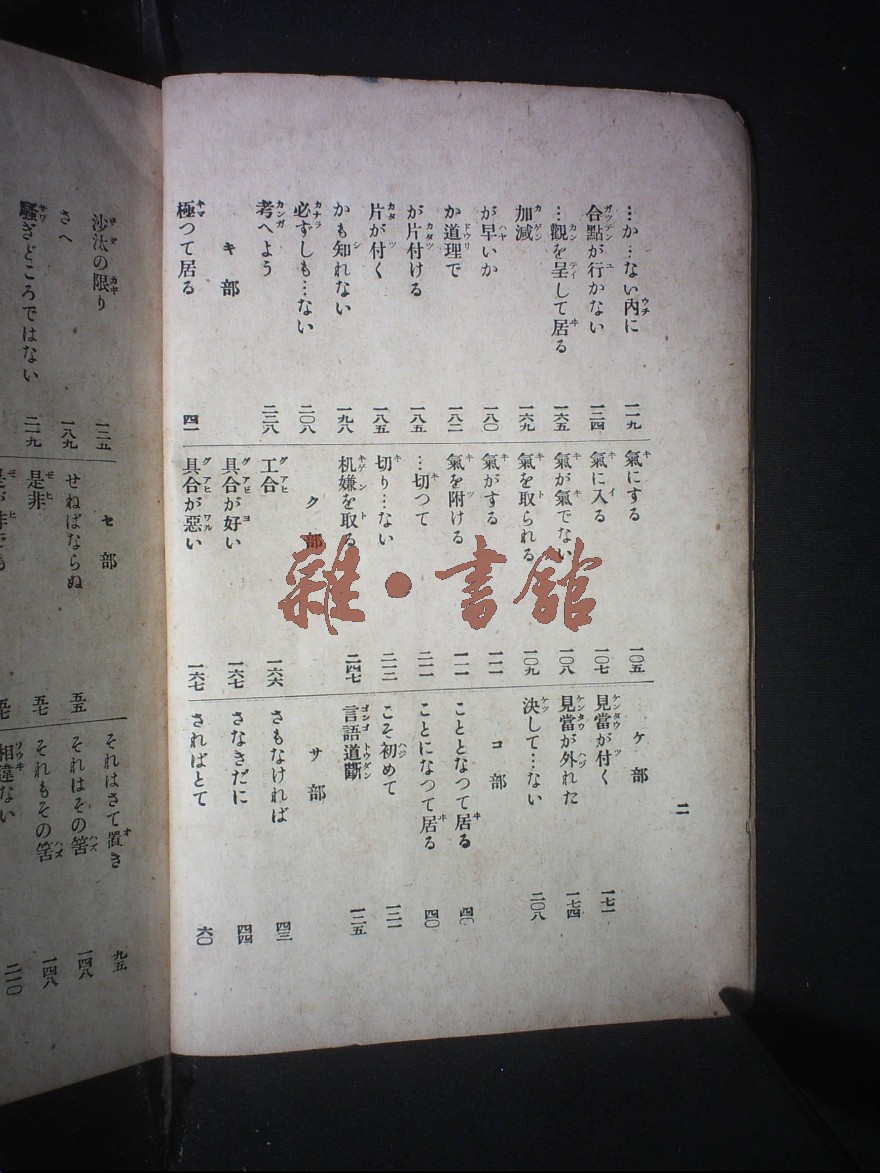 二
…か…ない內に 一一九
合點が行かない 一三四
…觀を呈して居る 一六五
加減 一六九
が早いか 一八〇
か道理で 一八二
が片付ける 一八五
片が付く 一八五
かも知れない 一九八
必ずしも…ない 二〇八
考へよう 二三八
キ部
極つて居る 四一
氣にする 一〇五
氣に入る 一〇七
氣が氣でない 一〇八
氣を取られる 一〇九
氣がする 一一一
氣を附ける 一一一
…切つて 二一一
切り…ない 二一三
机嫌を取る 二四七
ク部
工合 一六六
具合が好い 一六七
具合が惡い 一六七
ケ部
見當が付く 一七一
見當が外れた 一七四
決して…ない 二〇八
コ部
こととなつて居る 四〇
ことになつて居る 四〇
こそ初めて 一三一
言語道斷 一三五
サ部
さもなければ 四三
さなきだに 四四
さればとて 六〇
沙汰の限り 一二五
さへ 一八九
騷ぎどころではない 二一九
セ部
せねばならぬ 五五
是非 五七
それはさて置き 九五
それはその筈 一四八
それもその筈 一四八
相違ない 二一〇
雜·書館